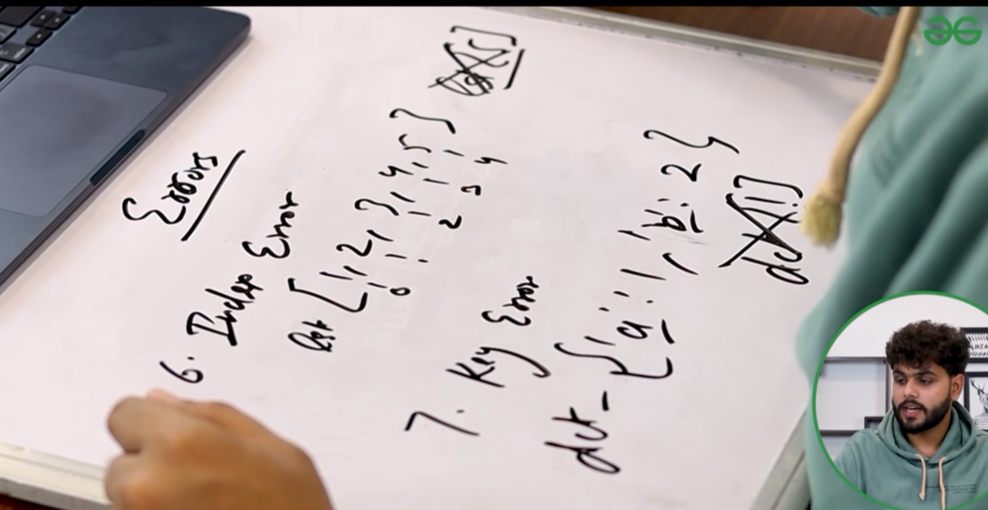 Errors
6. Index Error
list [1, 2, 3, 4, 5]
0 1 2 3 4
7. Key Error
dct - {'a': 1, 'b': 2}
dct[i]